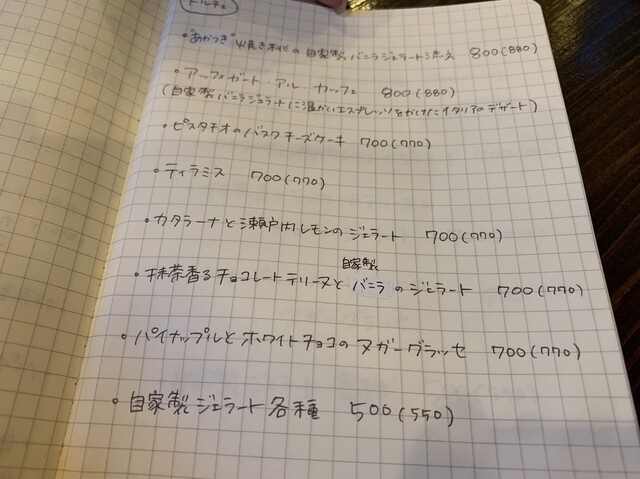 ドルチェ
・"あかつき"焼き桃の自家製バニラジェラート添え 800(880)
・アッフォガート アル カッフェ 800(880)
(自家製バニラジェラートに温かいエスプレッソをかけたイタリアのデザート)
・ピスタチオのバスクチーズケーキ 700(770)
・ティラミス 700(770)
・カタラーナと瀬戸内レモンのジェラート 700(770)
・抹茶香るチョコレートテリーヌと自家製バニラのジェラート 700(770)
・パイナップルとホワイトチョコのヌガーグラッセ 700(770)
・自家製ジェラート各種 500(550)